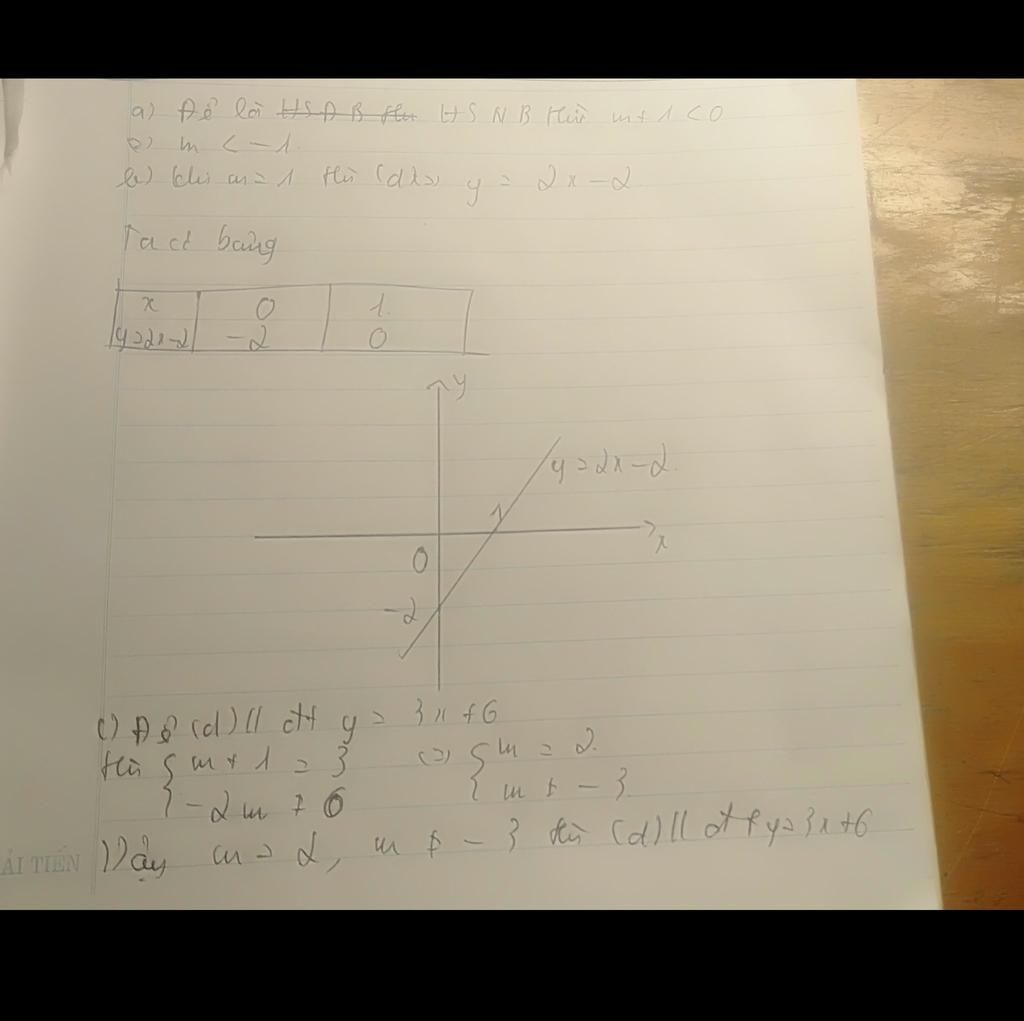 a) Để là H̶S̶Đ̶B̶ ̶t̶h̶ì̶ HSNB thì m + 1 < 0
<=> m < -1.
b) khi m = 1 thì (d) <=> y = 2x - 2
Ta có bảng
x 0 1.
y=2x-2 -2 0
y
y = 2x - 2.
1
x
0
-2
c) Để (d) // đt y = 3x + 6
thì { m + 1 = 3 <=> { m = 2.
{ -2m ≠ 6 { m ≠ -3
Vậy m = 2, m ≠ -3 thì (d) // đt y = 3x + 6
ẢI TIẾN